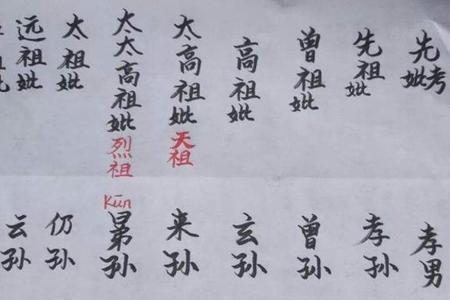 先考妣
先祖妣
曾祖妣
高祖妣
太高祖妣
天祖
太太高祖妣
烈祖
太祖妣
远祖妣
孝男
孝孙
曾孙
玄孙
来孙
Kūn
晜孙
仍孙
云孙